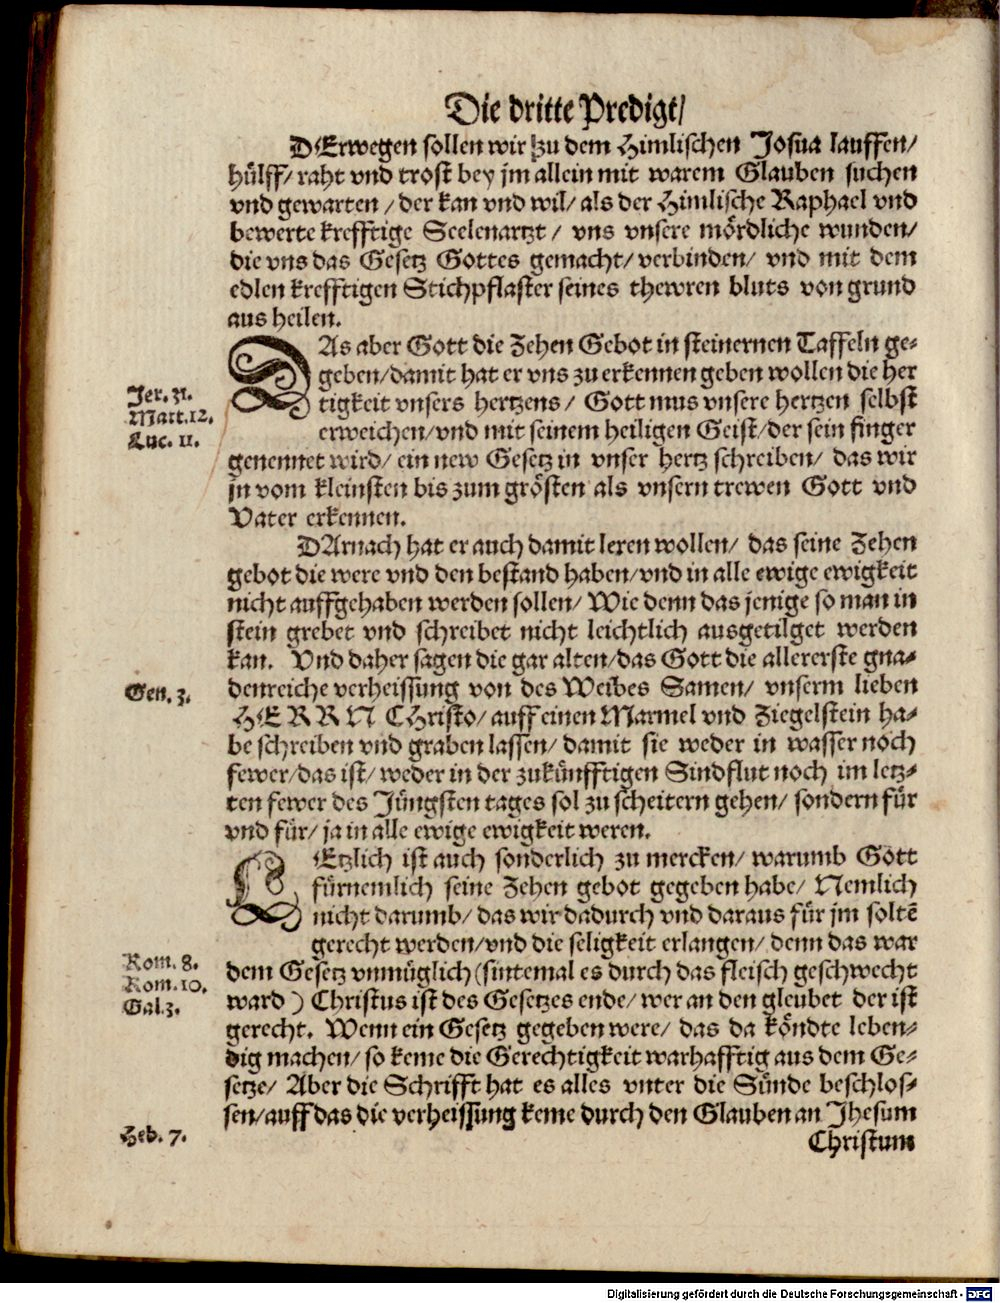 Die dritte Predigt/
DErwegen sollen wir zu dem Himlischen Josua lauffen/
hülff/ raht vnd trost bey jm allein mit warem Glauben suchen
vnd gewarten / der kan vnd wil/ als der Himlische Raphael vnd
bewerte krefftige Seelenartzt / vns vnsere mördliche wunden/
die vns das Gesetz Gottes gemacht/ verbinden/ vnd mit dem
edlen krefftigen Stichpflaster seines thewren bluts von grund
aus heilen.
DAs aber Gott die Zehen Gebot in steinernen Taffeln ge-
geben/damit hat er vns zu erkennen geben wollen die her
Jer. 31.
tigkeit vnsers hertzens / Gott mus vnsere hertzen selbst
Matt. 12.
erweichen/vnd mit seinem heiligen Geist/der sein finger
Luc. 11.
genennet wird/ ein new Gesetz in vnser hertz schreiben/ das wir
jn vom kleinsten bis zum grösten als vnsern trewen Gott vnd
Vater erkennen.
DArnach hat er auch damit leren wollen/ das seine Zehen
gebot die were vnd den bestand haben/vnd in alle ewige ewigkeit
nicht auffgehaben werden sollen/ Wie denn das jenige so man in
stein grebet vnd schreibet nicht leichtlich ausgetilget werden
kan. Vnd daher sagen die gar alten/das Gott die allererste gna-
Gen. 3.
denreiche verheissung von des Weibes Samen/ vnserm lieben
HERRN CHristo/ auff einen Marmel vnd Ziegelstein ha-
be schreiben vnd graben lassen/ damit sie weder in wasser noch
fewer/das ist/ weder in der zukünfftigen Sindflut noch im letz-
ten fewer des Jüngsten tages sol zu scheitern gehen/ sondern für
vnd für/ ja in alle ewige ewigkeit weren.
LEtzlich ist auch sonderlich zu mercken/ warumb Gott
fürnemlich seine Zehen gebot gegeben habe/ Nemlich
nicht darumb/ das wir dadurch vnd daraus für jm soltē
gerecht werden/vnd die seligkeit erlangen/ denn das war
Rom. 8.
dem Gesetz vnmüglich (sintemal es durch das fleisch geschwecht
Rom. 10.
ward ) Christus ist des Gesetzes ende/ wer an den gleubet der ist
Gal. 3.
gerecht. Wenn ein Gesetz gegeben were/ das da köndte leben-
dig machen/ so keme die Gerechtigkeit warhafftig aus dem Ge-
setze/ Aber die Schrifft hat es alles vnter die Sünde beschlos-
sen/auff das die verheissung keme durch den Glauben an Jhesum
Heb. 7.
Christum
Digitalisierung gefördert durch die Deutsche Forschungsgemeinschaft - DFG